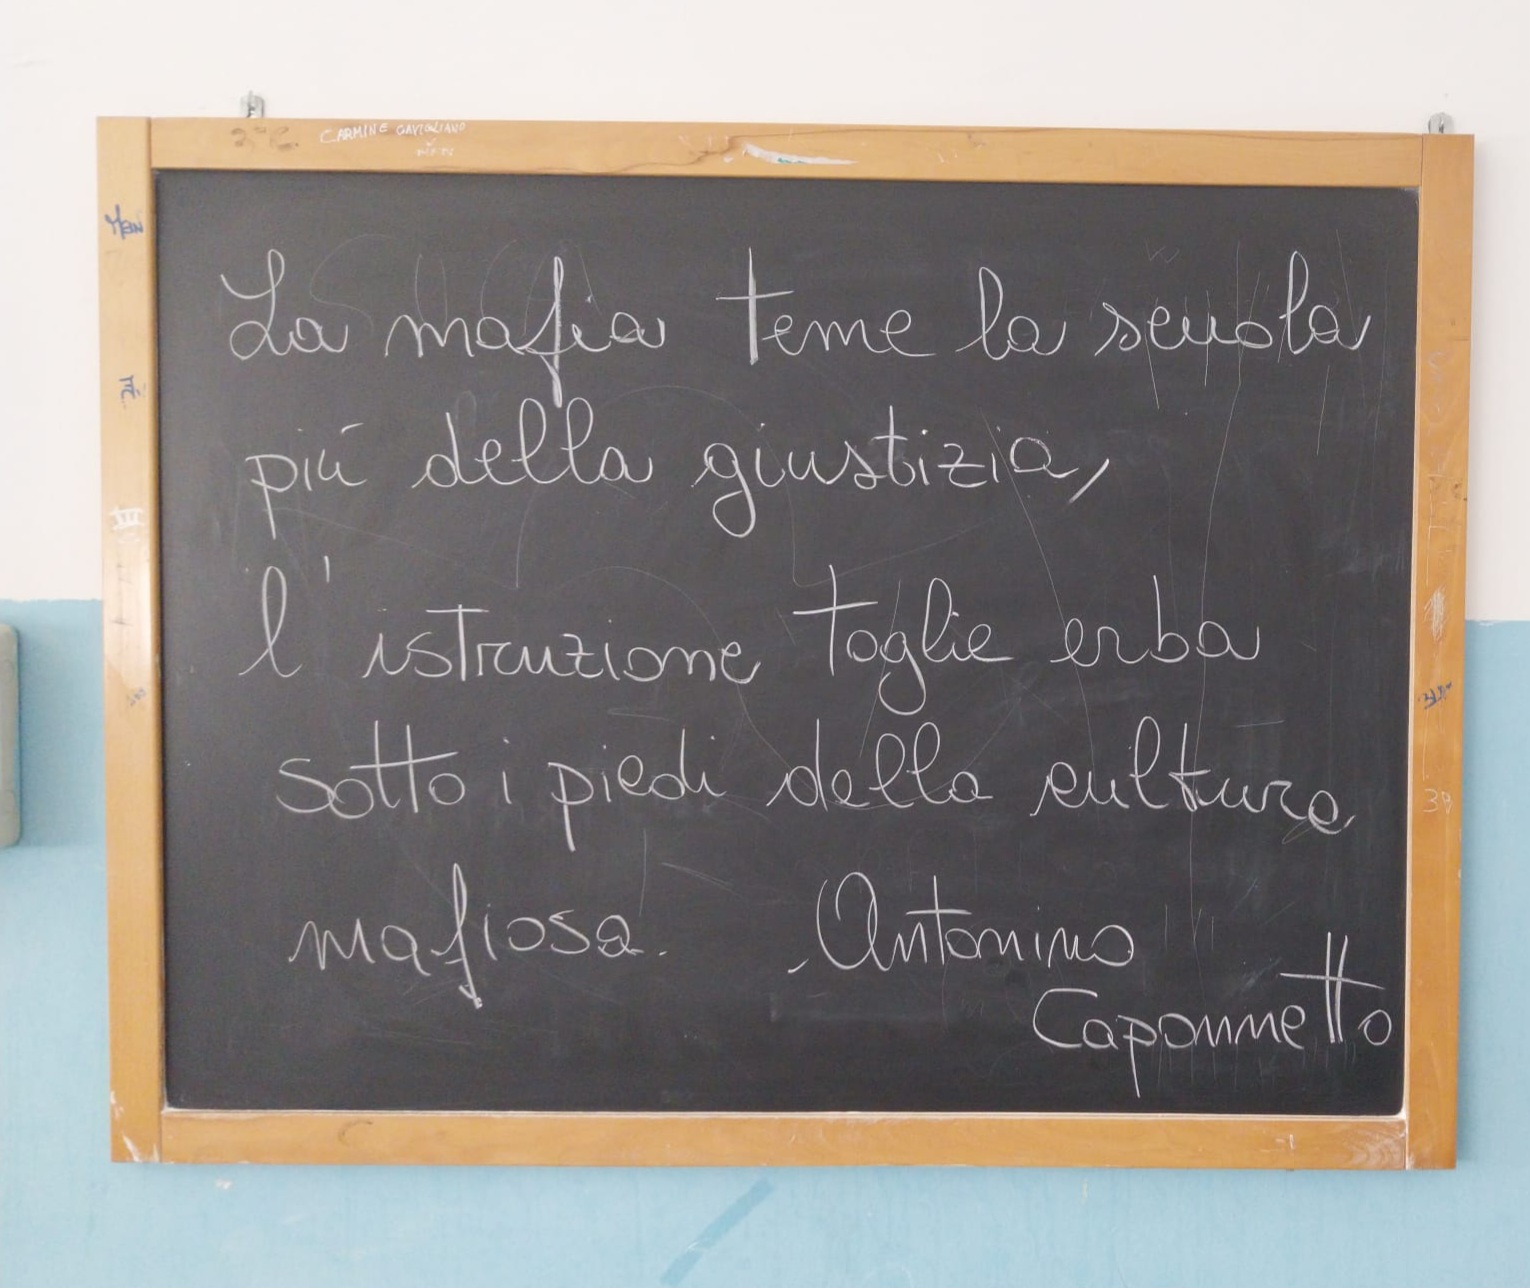 CARMINE
La mafia teme la scuola
piú della giustizia,
l'istruzione toglie erba
sotto i piedi della cultura
mafiosa. Antonino
Caponnetto